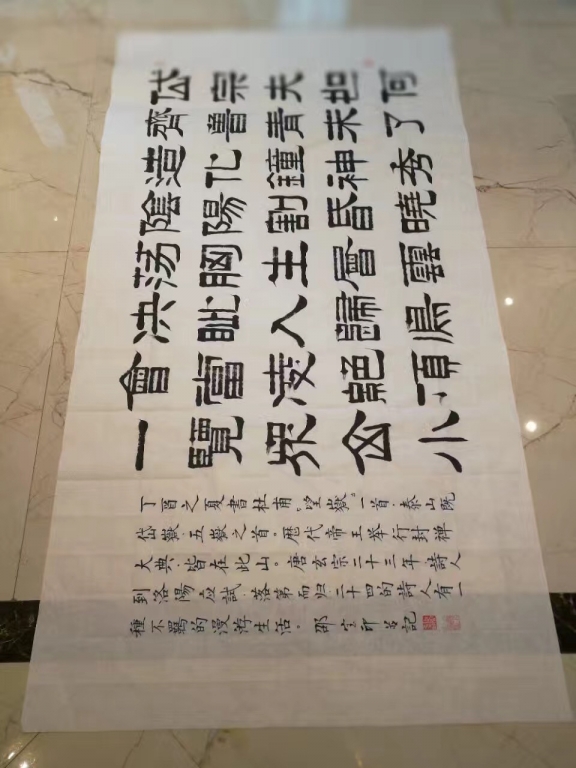 岱宗夫如何
齊魯青未了
造化鐘神秀
陰陽割昏曉
荡胸生層雲
決眦入歸鳥
會當凌絕頂
一覽眾山小
丁酉之夏書杜甫。望嶽。一首.泰山既
岱嶽.五嶽之首.歷代帝王举行封禅
大典.皆在此山。唐玄宗二十三年詩人
到洛陽应試.落第而归.二十四的詩人有一
種不羈的漫游生活。邵 記